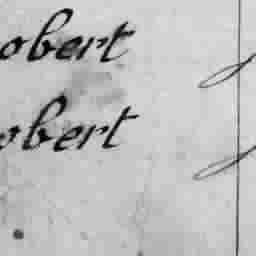 obert
obert